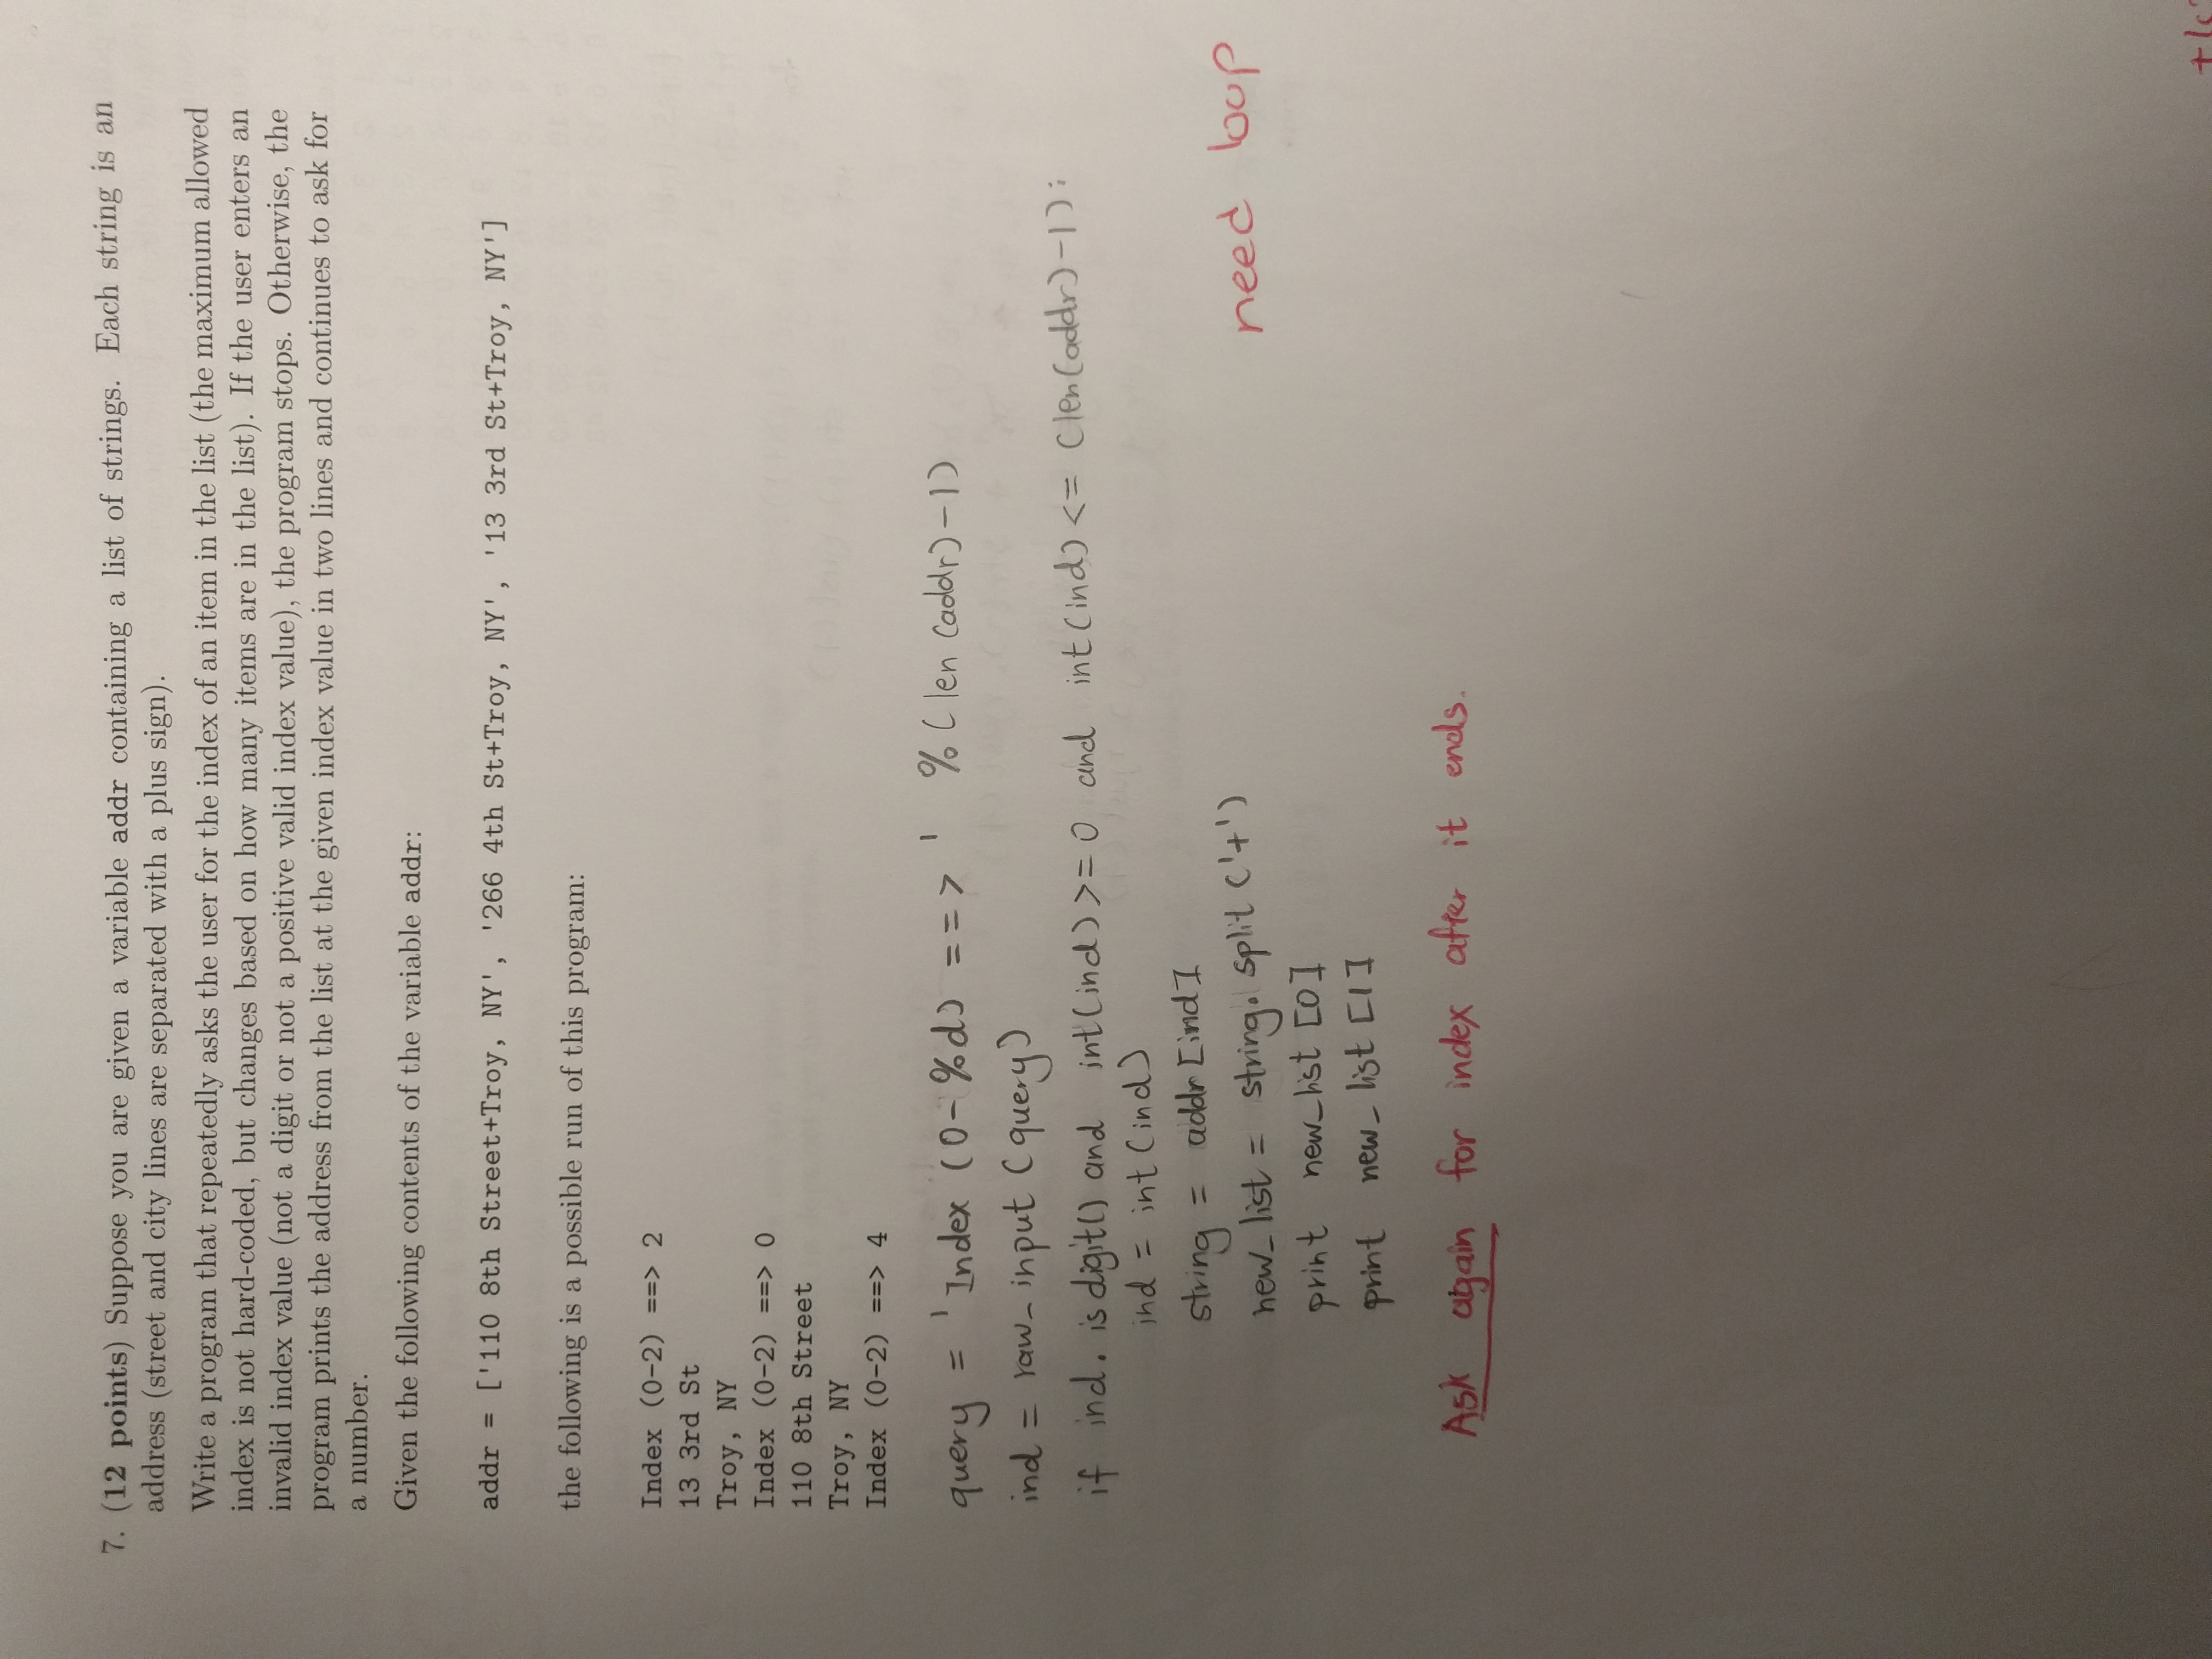 7. (12 points) Suppose you are given a variable addr containing a list of strings. Each string is an
address (street and city lines are separated with a plus sign).
Write a program that repeatedly asks the user for the index of an item in the list (the maximum allowed
index is not hard-coded, but changes based on how many items are in the list). If the user enters an
invalid index value (not a digit or not a positive valid index value), the program stops. Otherwise, the
program prints the address from the list at the given index value in two lines and continues to ask for
a number.
Given the following contents of the variable addr:
addr = ['110 8th Street+Troy, NY', '266 4th St+Troy, NY', '13 3rd St+Troy, NY']
the following is a possible run of this program:
Index (0-2) ==> 2
13 3rd St
Troy, NY
Index (0-2) ==> 0
110 8th Street
Troy, NY
Index (0-2) ==> 4
query = 'Index (0-%d) ==> ' %(len(addr)-1)
ind = raw_input(query)
if ind.isdigit() and int(ind)>=0 and int(ind)<= (len(addr)-1):
ind = int(ind)
string = addr[ind]
new_list = string.split('+')
need loop
print new_list[0]
print new_list[1]
Ask again for index after it ends.